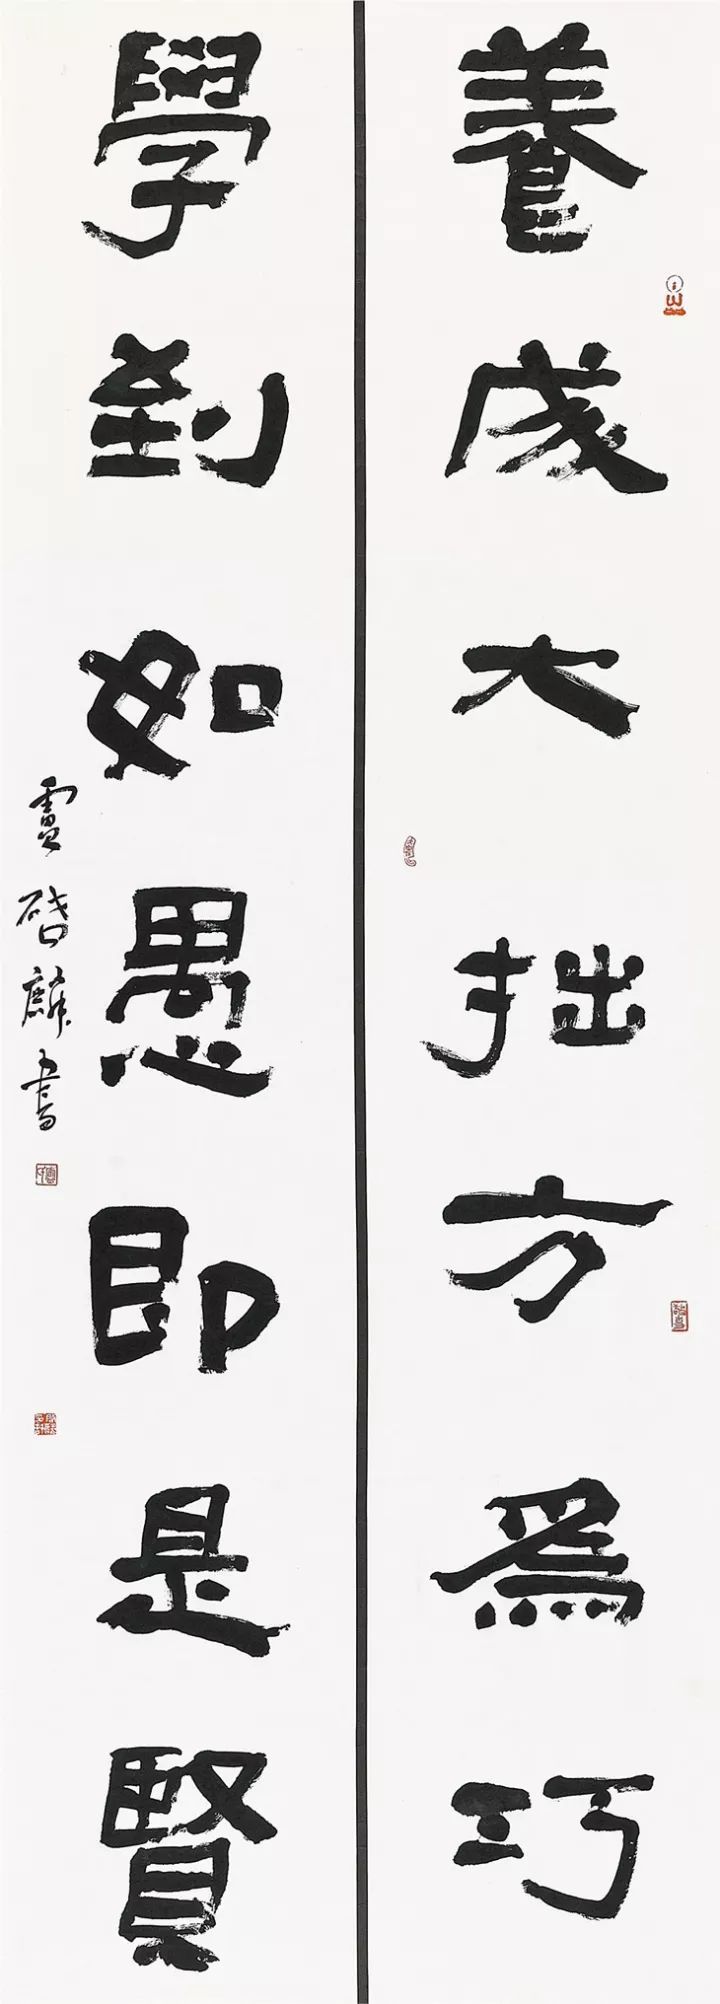 養成大拙方爲巧
學到如愚即是賢
書